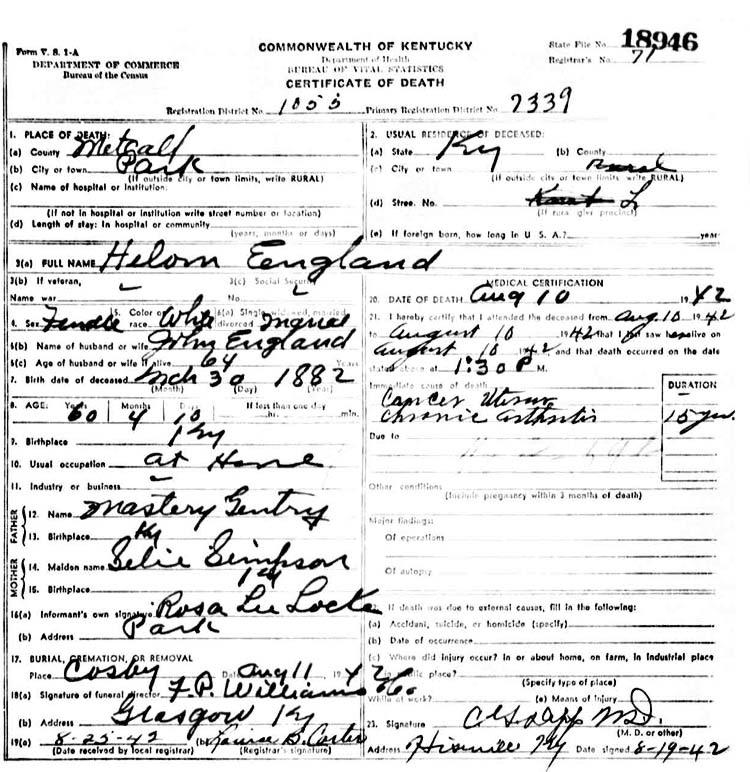 Form V. S. 1-A
DEPARTMENT OF COMMERCE
Bureau of the Census
COMMONWEALTH OF KENTUCKY
Department of Health
BUREAU OF VITAL STATISTICS
CERTIFICATE OF DEATH
State File No. 18946
Registrar's No. 71
Registration District No. 1055 Primary Registration District No. 7339
1. PLACE OF DEATH:
(a) County Metcalf
(b) City or town Park
(If outside city or town limits, write RURAL)
(c) Name of hospital or institution:
(If not in hospital or institution write street number or location)
(d) Length of stay: In hospital or community
(years, months or days)
2. USUAL RESIDENCE OF DECEASED:
(a) State Ky (b) County
(c) City or town Rural
(If outside city or town limits write RURAL)
(d) Stree. No.
(If rural give precinct)
(e) If foreign born, how long in U S A.? years
3(a) FULL NAME Helom England
3(b) If veteran, 3(c) Social Security
Name war No.
4. Sex Female 5. Color or race White 6(a) Single, widowed, married, divorced
6(b) Name of husband or wife John England
6(c) Age of husband or wife if alive 64 Years
7. Birth date of deceased Mch 30 1882
(Month) (Day) (Year)
8. AGE: Years 60 Months 4 Days 10 If less than one day hr. min.
9. Birthplace Ky
10. Usual occupation at Home
11. Industry or business
FATHER
12. Name Mastery Gentry
13. Birthplace Ky
MOTHER
14. Maiden name Simpson
15. Birthplace Ky
16(a) Informant's own signature Rosa Lee Locke
(b) Address Park
17. BURIAL, CREMATION, OR REMOVAL
Place Cosby Date Aug 11 1942
18(a) Signature of funeral director F. P. Williams
(b) Address Glasgow Ky
19(a) 8-25-42 (b) Louise B. Carter
(Date received by local registrar) (Registrar's signature)
MEDICAL CERTIFICATION
20. DATE OF DEATH Aug 10 1942
21. I hereby certify that I attended the deceased from Aug 10 1942
to August 10 1942 that I last saw her alive on
August 10 1942, and that death occurred on the date
stated above at 1:30 P M.
Immediate cause of death DURATION
Cancer Uterus
Chronic arthritis 15 yrs.
Due to
Other conditions
(Include pregnancy within 3 months of death)
Major findings:
Of operations
Of autopsy
22. If death was due to external causes, fill in the following:
(a) Accident, suicide, or homicide (specify)
(b) Date of occurrence
(c) Where did injury occur? In or about home, on farm, in industrial place
in public place?
(Specify type of place)
While at work? (e) Means of Injury
23. Signature M.D.
(M. D. or other)
Address Hiseville Ky Date signed 8-19-42